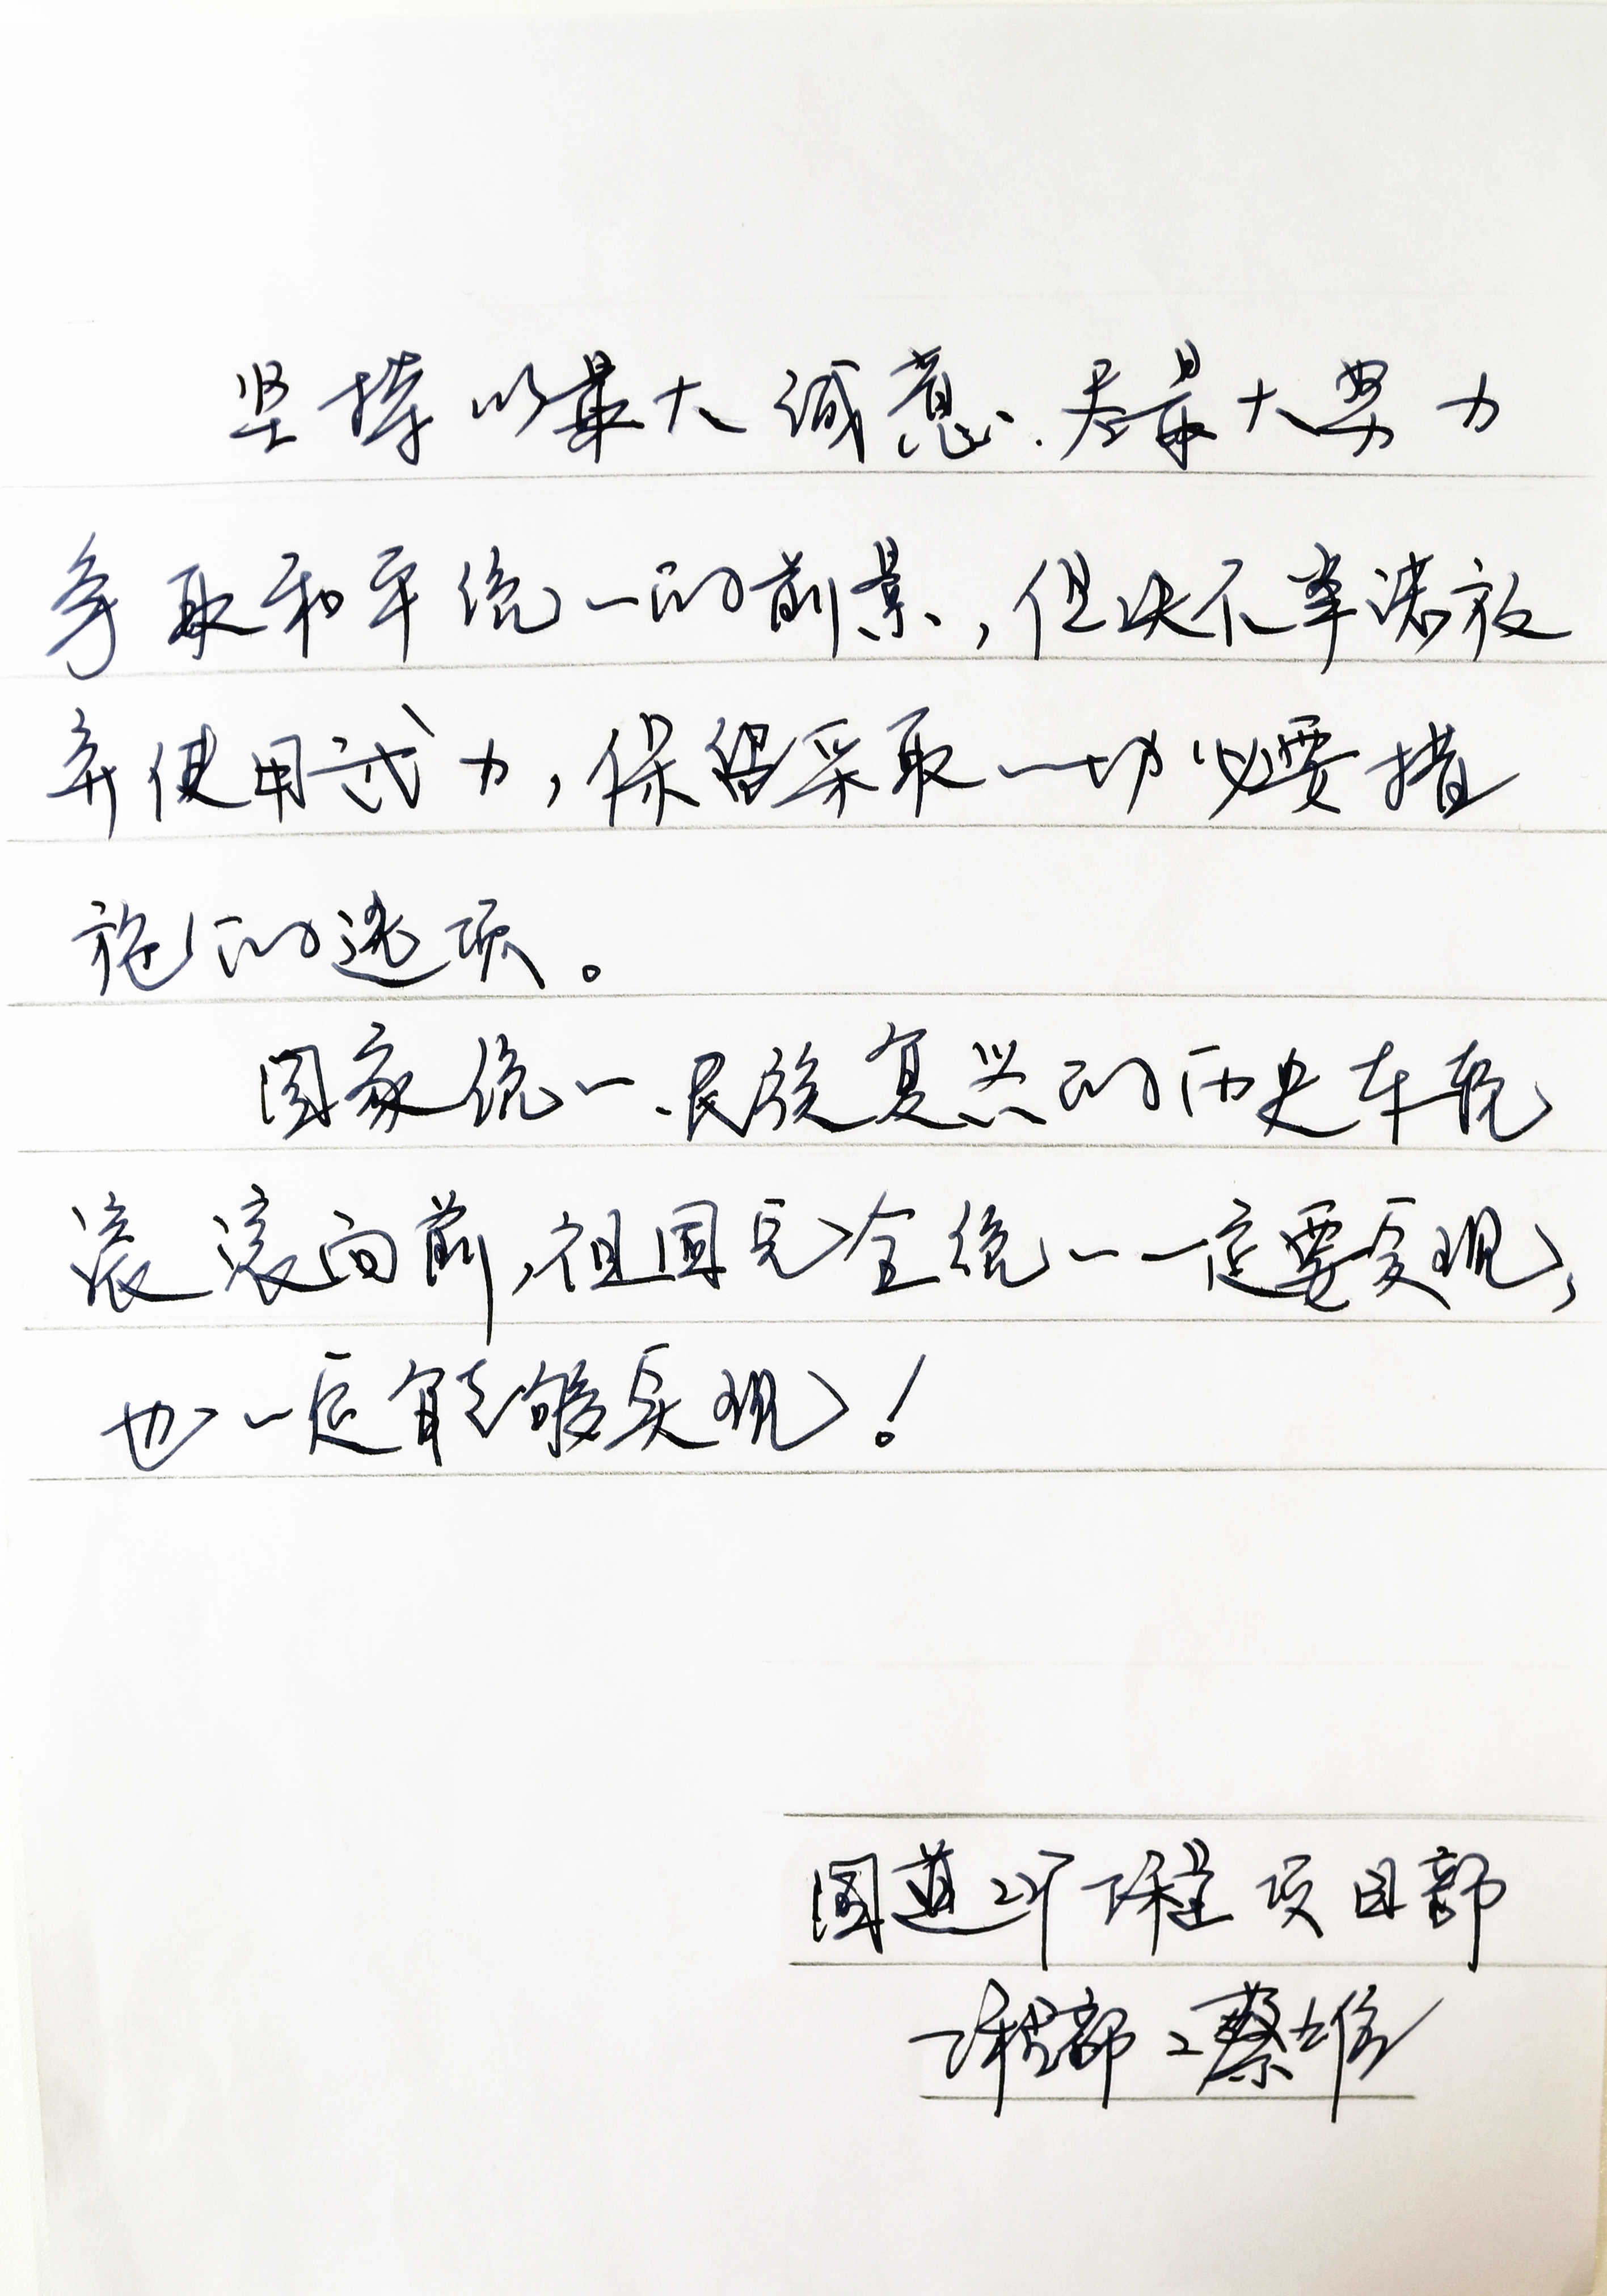 坚持以最大诚意、尽最大努力
争取和平统一的前景，但决不承诺放
弃使用武力，保留采取一切必要措
施的选项。
国家统一、民族复兴的历史车轮
滚滚向前，祖国完全统一一定要实现，
也一定能够实现！
国道工程项目部
工程部：蔡雄